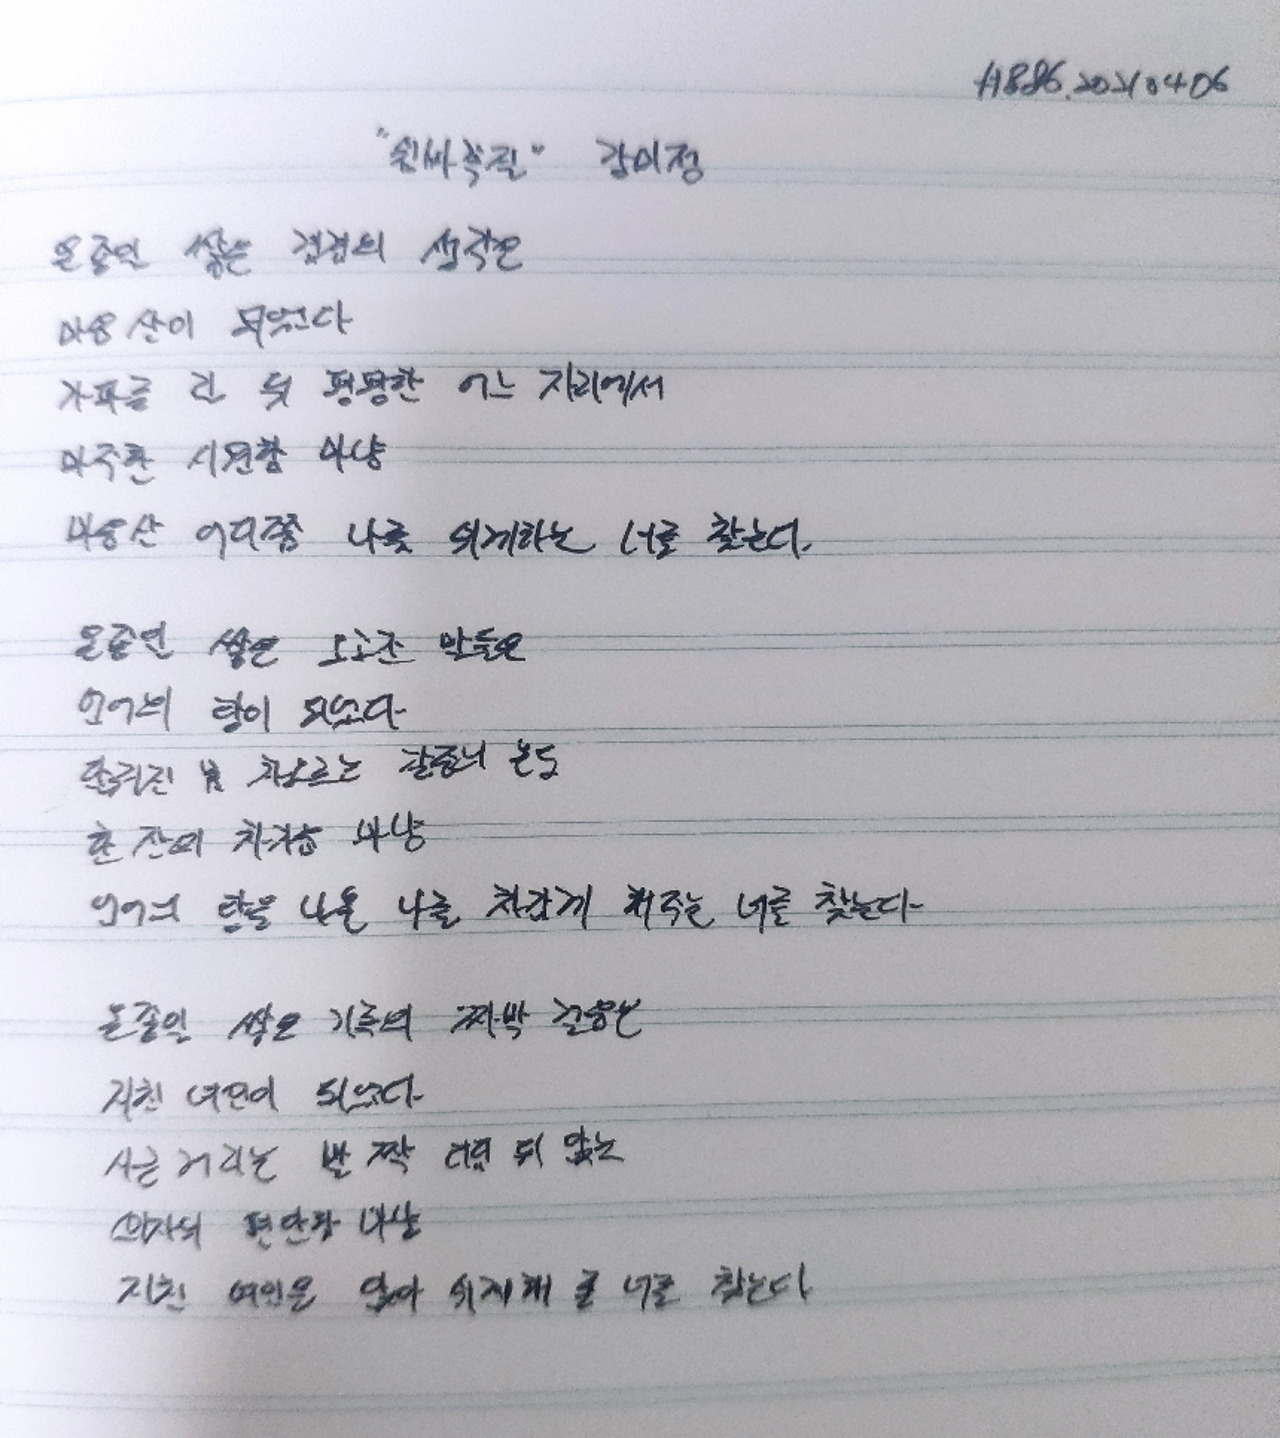 #886.20210406
"쉼바꼭질" 강미정
온종일 쌓은 겹겹의 생각은
마음 산이 되었다
가파름 뒤 평평한 어느 자리에서
마주한 시원함 마냥
마음산 어디쯤 나를 쉬게하는 너를 찾는다.
온종일 쌓은 오고간 말들은
언어의 탑이 되었다
차오르는 갈증의 온도
한 잔의 차가움 마냥
언어의 탑을 나온 나를 차갑게 채우는 너를 찾는다
온종일 쌓은 기록의 찌박 걸음은
지친 여인이 되었다
시큰거리는 발 짝 뒤 앉는
의자의 편안함 마냥
지친 여인은 앉아 쉬게 해 줄 너를 찾는다